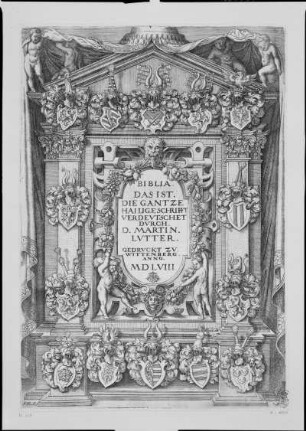 BIBLIA
DAS IST.
DIE GANTZE
HAILIGE SCHRIFT
VERDEVTSCHET
DVRCH
D. MARTIN.
LVTTER.
GEDRVCKT ZV
WITTENBERG.
ANNO.
MDLVIII